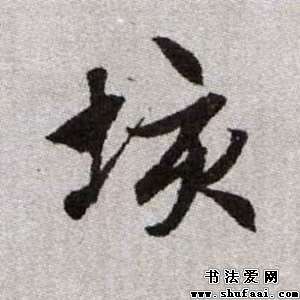 垓
书法爱网
www.shufaai.com